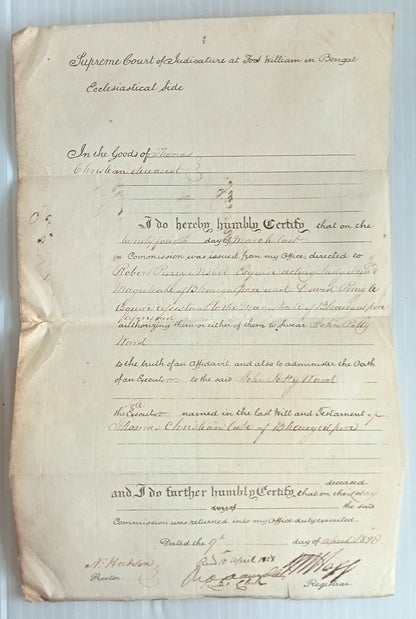 Supreme Court of Judicature at Fort William in Bengal
Ecclesiastical Side
In the Goods of Thomas
Christian deceased
I do hereby humbly Certify that on the
twenty fourth day of March last
a Commission was issued from my Office directed to
Robert Nisbet Esquire acting Judge and
Magistrate of Bhaugulpore and David Pringle
Esquire assistant to the Magistrate of Bhaugulpore
authorizing them or either of them to Swear John
Ward
to the truth of an Affidavit and also to administer the Oath
of an Executor to the said John Ward
the Executor named in the last Will and Testament of
Thomas Christian late of Bhaugulpore
deceased
and I do further humbly Certify that on the
day of the said
Commission was returned into my Office duly executed.
Dated the 9th day of April 1828
N. Hudson
Proctor.
10 April 1828
Registrar